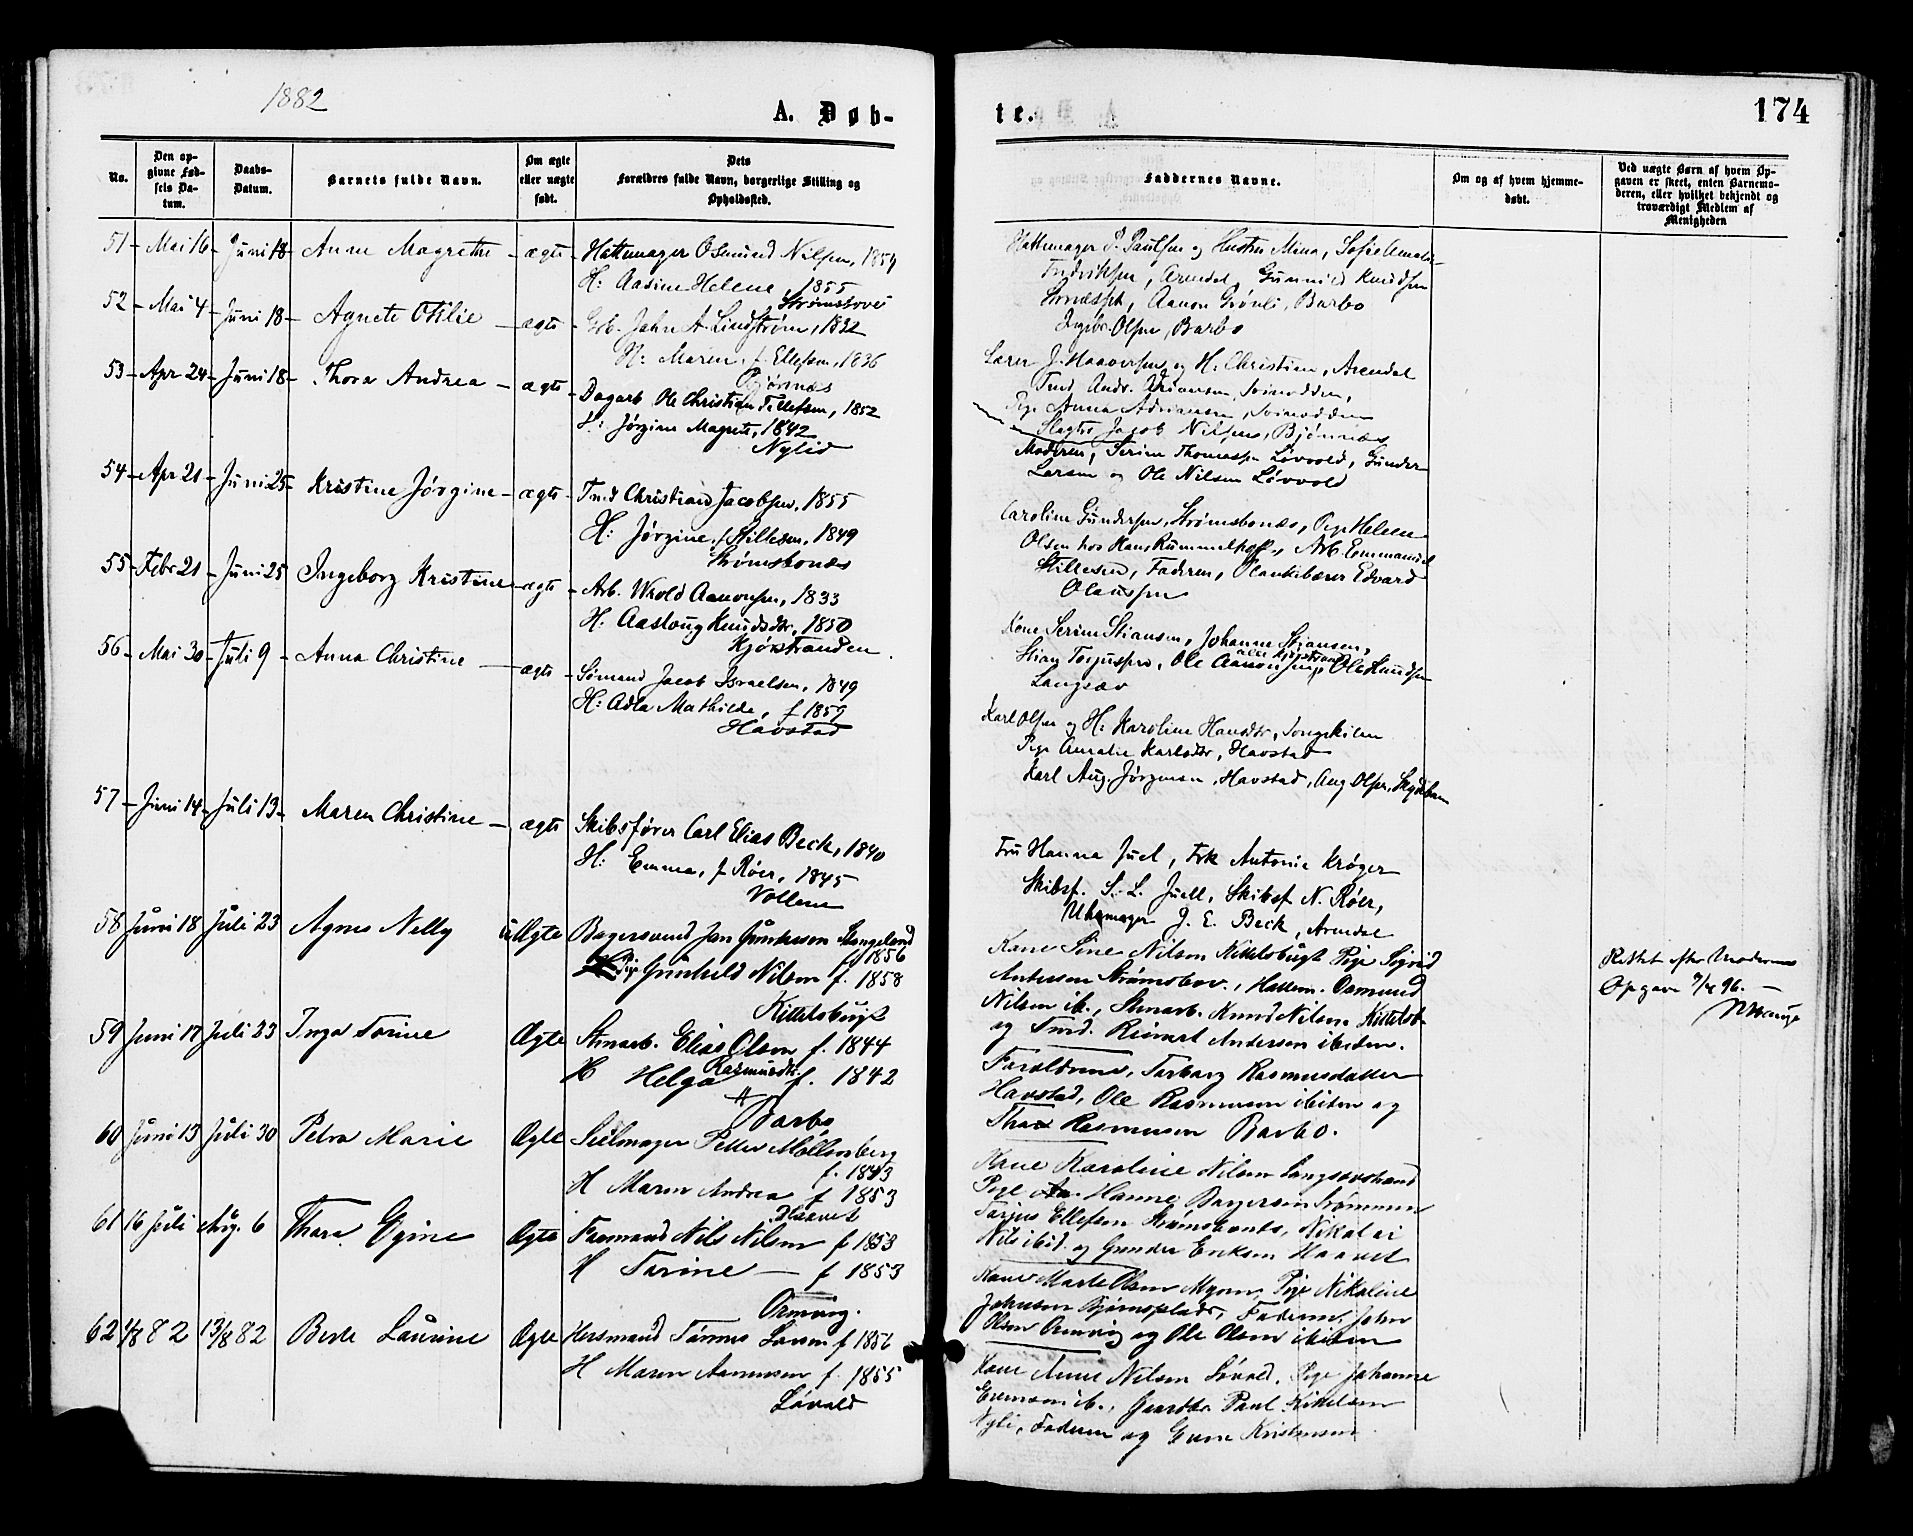 1882
A. Døb-
te.
174
No.
Den op-
givne Fød-
sels Da-
tum.
Daabs-
Datum.
Barnets fulde Navn.
Om ægte
eller uægte
født.
Dets
Forældres fulde Navn, borgerlige Stilling og
Opholdssted.
Faddernes Navne.
Om og af hvem hjemme-
døbt.
Ved uægte Børn af hvem Op-
gaven er skeet, enten Barnemo-
deren, eller hvilket bekjendt og
troværdigt Medlem af
Menigheden
51 - Mai 16 - Juni 18 - Anne Magrethe - ægte - Hattemager Osmund Nilsen, 1854
H: Aasine Helene, 1855
Strømsbovei
Hattemager P. Paulsen og Hustru Mina, Sofie Amalie
Fredriksen, Arendal, Gunnild Knudsen
Aanon Grønli, Barbo
Ingebr. Olsen, Barbo
52 - Mai 4 - Juni 18 - Agnete Otilie - ægte - John A. Lindstrøm, 1832
H: Maren, f. Ellefsen, 1836
Bjønnes
Lærer J. Haaversen og H: Christine, Arendal
Tmd Andr. Adriansen,
Pige Anna Adriansen,
Slagter Jacob Nilsen, Bjønnæs
53 - Apr 24 - Juni 18 - Thora Andrea - ægte - Dagarb Ole Christian Tellefsen, 1852
H: Jørgine Magrete, 1842
Nylid
Moderen, Serine Thomassen Løvvold, Gunder
Larsen og Ole Nilsen Løvvold
54 - Apr 21 - Juni 25 - Kristine Jørgine - ægte - Tmd Christian Jacobsen, 1855
H: Jørgine, f Stillesen, 1849
Strømsbonæs
Caroline Gundersen, Strømsbonæs, Pige Helene
Olsen hos Hans Rummelhoff, Arb. Emmanuel
Stillesen, Faderen, Plankebærer Edvard
Olaussen
55 - Febr 21 - Juni 25 - Ingeborg Kristine - ægte - Arb. Wrold Aanonsen, 1833
H. Aaslaug Knudsdtr, 1850
Kjørstranden
Kone Serine Stiansen, Johanne Stiansen,
Stian Terjussen, Ole Aanonsen, Ole Knudsen
Langsæv
56 - Mai 30 - Juli 9 - Anna Christine - ægte - Sømand Jacob Israelsen, 1849
H: Adla Mathilde, f 1859
Havstad
Karl Olsen og H: Karoline Hansdtr, Songekilen
Pige Amalie Karlsdtr, Havstad
Karl Aug. Jørgensen, Havstad, Aug Olsen,
57 - Juni 14 - Juli 13 - Maren Christine - ægte Skibsfører Carl Elias Beck, 1840
H: Emma, f Røer, 1845
Vollene
Fru Hanna Juel, Frk Antonie Krøger
Skibsf. S. L. Juell, Skibsf N. Røer,
Uhrmager J. E. Beck, Arendal
58 Juni 18 Juli 23 Agnes Nelly uægte Bagersvend Jan Gundersen Stangeland
f 1856
Pige Gunhild Nilsen f. 1858
Kittelsbugt
Kone Sine Nilsen Kittelsbugt Pige Sigrid
Andersen Strømsbov., Hattem. Osmund
Nilsen ib., Stenarb. Knud Nilsen Kittelsb.
og Tmd. Reinert Andersen ibidem.
Rettet efter Moderens
Opgave 7/4 96. -
59 Juni 17 Juli 23 Inga Torine Ægte Stenarb. Elias Olsen f. 1844
H Helga Rasmusdtr. f. 1842
Barbo
Forældrene, Torborg Rasmusdatter
Havstad, Ole Rasmussen ibidem og
Thor Rasmussen Barbo.
60 Juni 13 Juli 30 Petra Marie Ægte Seilmager Petter Møllenberg
f. 1843
H Maren Andrea f 1853
Haavet
Kone Karoline Nilsen Langsævstrand
Pige Aa. Hanne Børgersen Strømmen
Torjus Ellefsen Strømsbonæs, Nikolai
Nils ibid. og Gunder Eriksen Haavet
61 16 Juli Aug. 6 Thora Ogine Ægte Formand Nils Nilsen f 1853
H Torine - f 1853
Ormvig.
Kone Marte Olsen Myren, Pige Nikoline
Johnsen Bjørnsplads, Faderen, John
Olsen Ormvig og Ole Olsen ibidem
62 1/8 82 13/8 82 Berte Laurine Ægte Hersmand Tønnes Larsen f 1856
H Maren Aanonsen f. 1855
Løvold
Kone Anne Nilsen Løvold, Pige Johanne
Evensen ib., Gaardbr. Paul Kittelsen
Nyli, Faderen og Gunn Kristensen